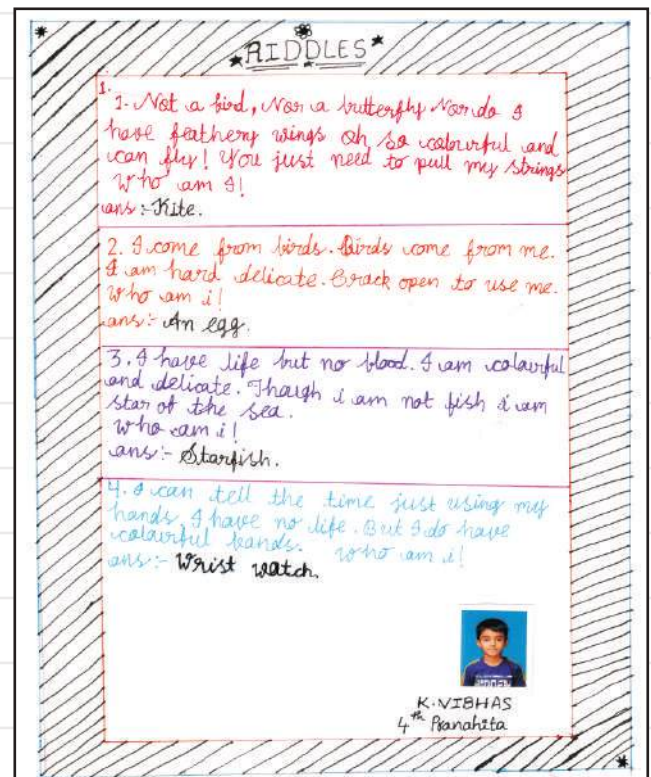 RIDDLES
1.
1. Not a bird, Nor a butterfly Nor do I
have feathery wings Oh so colourful and
can fly! You just need to pull my strings
Who am I!
ans:- Kite.
2. I come from birds. Birds come from me.
I am hard delicate. Crack open to use me.
Who am i!
ans:- An egg.
3. I have life but no blood. I am colourful
and delicate. Thaugh i am not fish i am
star of the sea.
who am i!
ans:- Starfish.
4. I can tell the time just using my
hands, I have no life. But I do have
colourful bands. Who am i!
ans:- Wrist watch.
K. VIBHAS
4th Pranahita